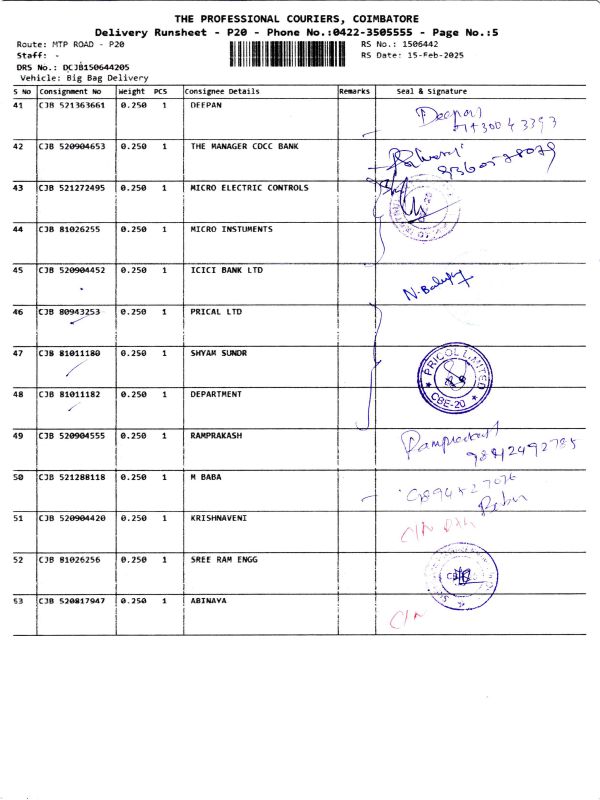 THE PROFESSIONAL COURIERS, COIMBATORE
Delivery Runsheet - P20 - Phone No.:0422-3505555 - Page No.:5
Route: MTP ROAD - P20 RS No.: 1506442
Staff: - RS Date: 15-Feb-2025
DRS No.: DCJB150644205
Vehicle: Big Bag Delivery
S No Consignment No Weight PCS Consignee Details Remarks Seal & Signature
41 CJB 521363661 0.250 1 DEEPAN
42 CJB 520904653 0.250 1 THE MANAGER CDCC BANK
43 CJB 521272495 0.250 1 MICRO ELECTRIC CONTROLS
44 CJB 81026255 0.250 1 MICRO INSTUMENTS
45 CJB 520904452 0.250 1 ICICI BANK LTD
46 CJB 80943253 0.250 1 PRICAL LTD
47 CJB 81011180 0.250 1 SHYAM SUNDR
PRICOL LIMITED
CBE-20
48 CJB 81011182 0.250 1 DEPARTMENT
49 CJB 520904555 0.250 1 RAMPRAKASH
9842492785
50 CJB 521288118 0.250 1 M BABA
51 CJB 520904420 0.250 1 KRISHNAVENI
52 CJB 81026256 0.250 1 SREE RAM ENGG
53 CJB 520817947 0.250 1 ABINAYA